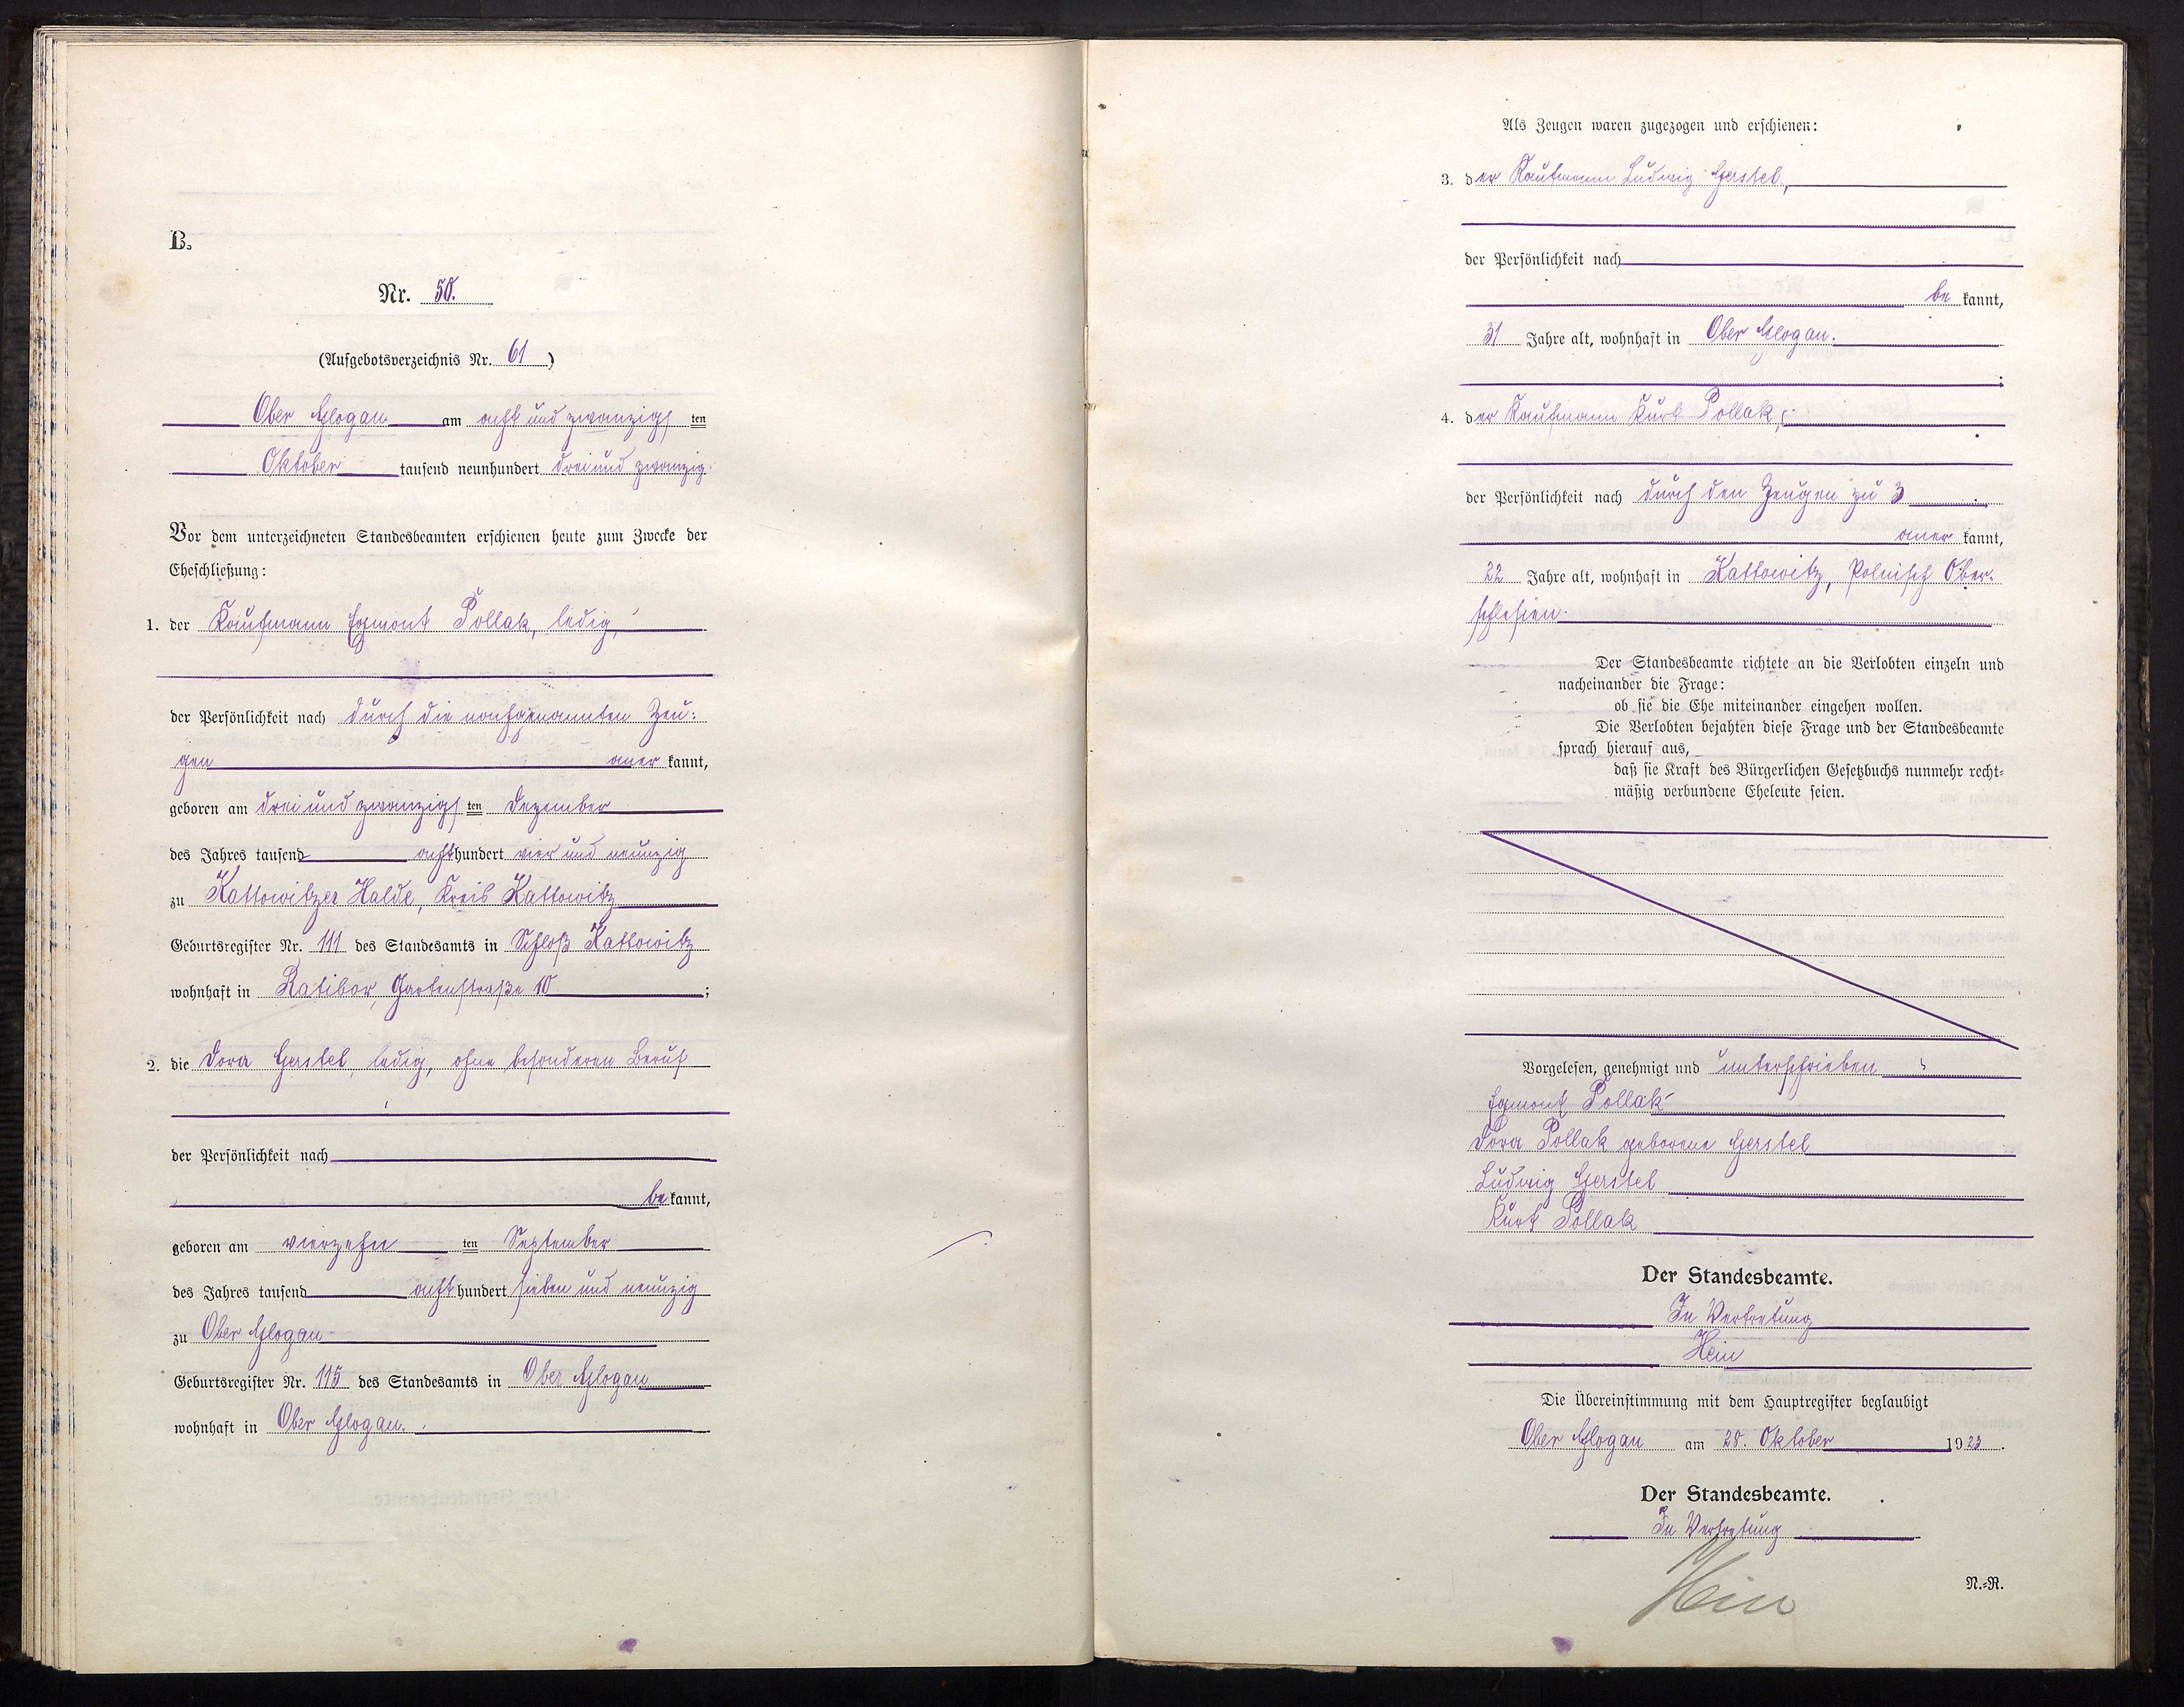 B.
Nr. 50.
(Aufgebotsverzeichnis Nr. 61)
Ober Glogau am acht und zwanzigs ten
Oktober tausend neunhundert drei und zwanzig.
Vor dem unterzeichneten Standesbeamten erschienen heute zum Zwecke der
Eheschließung:
1. der Kaufmann Egmont Pollak, ledig,
der Persönlichkeit nach durch die nachgenannten Zeu-
gen aner kannt,
geboren am drei und zwanzigs ten Dezember
des Jahres tausend acht hundert vier und neunzig
zu Kattowitzer Halde, Kreis Kattowitz
Geburtsregister Nr. 111 des Standesamts in Schloß Kattowitz
wohnhaft in Ratibor, Gartenstraße 10;
2. die Dora Gerstel, ledig, ohne besonderen Beruf
der Persönlichkeit nach
be kannt,
geboren am vierzehn ten September
des Jahres tausend acht hundert sieben und neunzig
zu Ober Glogau
Geburtsregister Nr. 115 des Standesamts in Ober Glogau
wohnhaft in Ober Glogau.
Als Zeugen waren zugezogen und erschienen:
3. der Kaufmann Ludwig Gerstel,
der Persönlichkeit nach
be kannt,
31 Jahre alt, wohnhaft in Ober Glogau.
;
4. der Kaufmann Kurt Pollak,
der Persönlichkeit nach durch den Zeugen zu 3
aner kannt,
22 Jahre alt, wohnhaft in Kattowitz, Polnisch Ober-
schlesien.
Der Standesbeamte richtete an die Verlobten einzeln und
nacheinander die Frage:
ob sie die Ehe miteinander eingehen wollen.
Die Verlobten bejahten diese Frage und der Standesbeamte
sprach hierauf aus,
daß sie Kraft des Bürgerlichen Gesetzbuchs nunmehr recht-
mäßig verbundene Eheleute seien.
Vorgelesen, genehmigt und unterschrieben
Egmont Pollak
Dora Pollak geborene Gerstel
Ludwig Gerstel
Kurt Pollak
Der Standesbeamte.
In Vertretung
Hein
Die Übereinstimmung mit dem Hauptregister beglaubigt
Ober Glogau am 28. Oktober 1923.
Der Standesbeamte.
In Vertretung
Hein
N.-R.